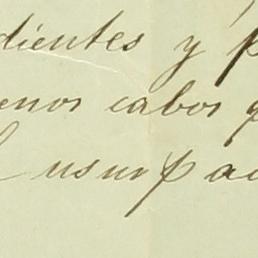 dientes y p
enos cabos q
usurpa